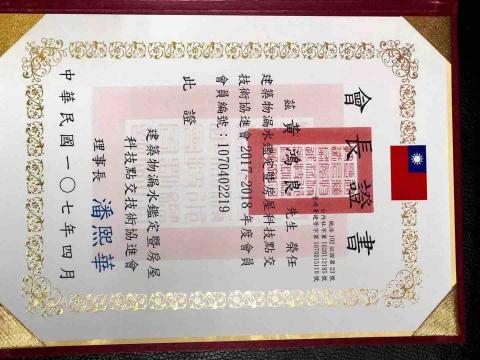 會長證書
茲 黃鴻良 先生 榮任
建築物漏水鑑定暨房屋科技點交
技術協進會2017~2018年度會員
會員編號：1070402219
此證
建築物漏水鑑定暨房屋
科技點交技術協進會
理事長 潘熙華
中華民國一〇七年四月